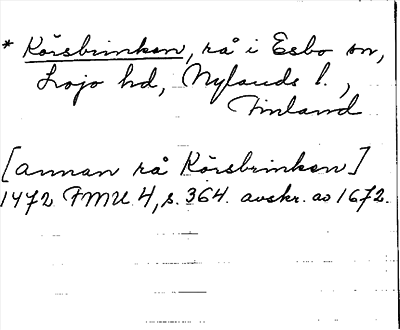 * Korsbrinken, rå i Esbo sn,
Lojo hd, Nylands l.,
Finland
[annan rå Korsbrinken]
1472 FMU 4, s. 364. avskr. av 1672.